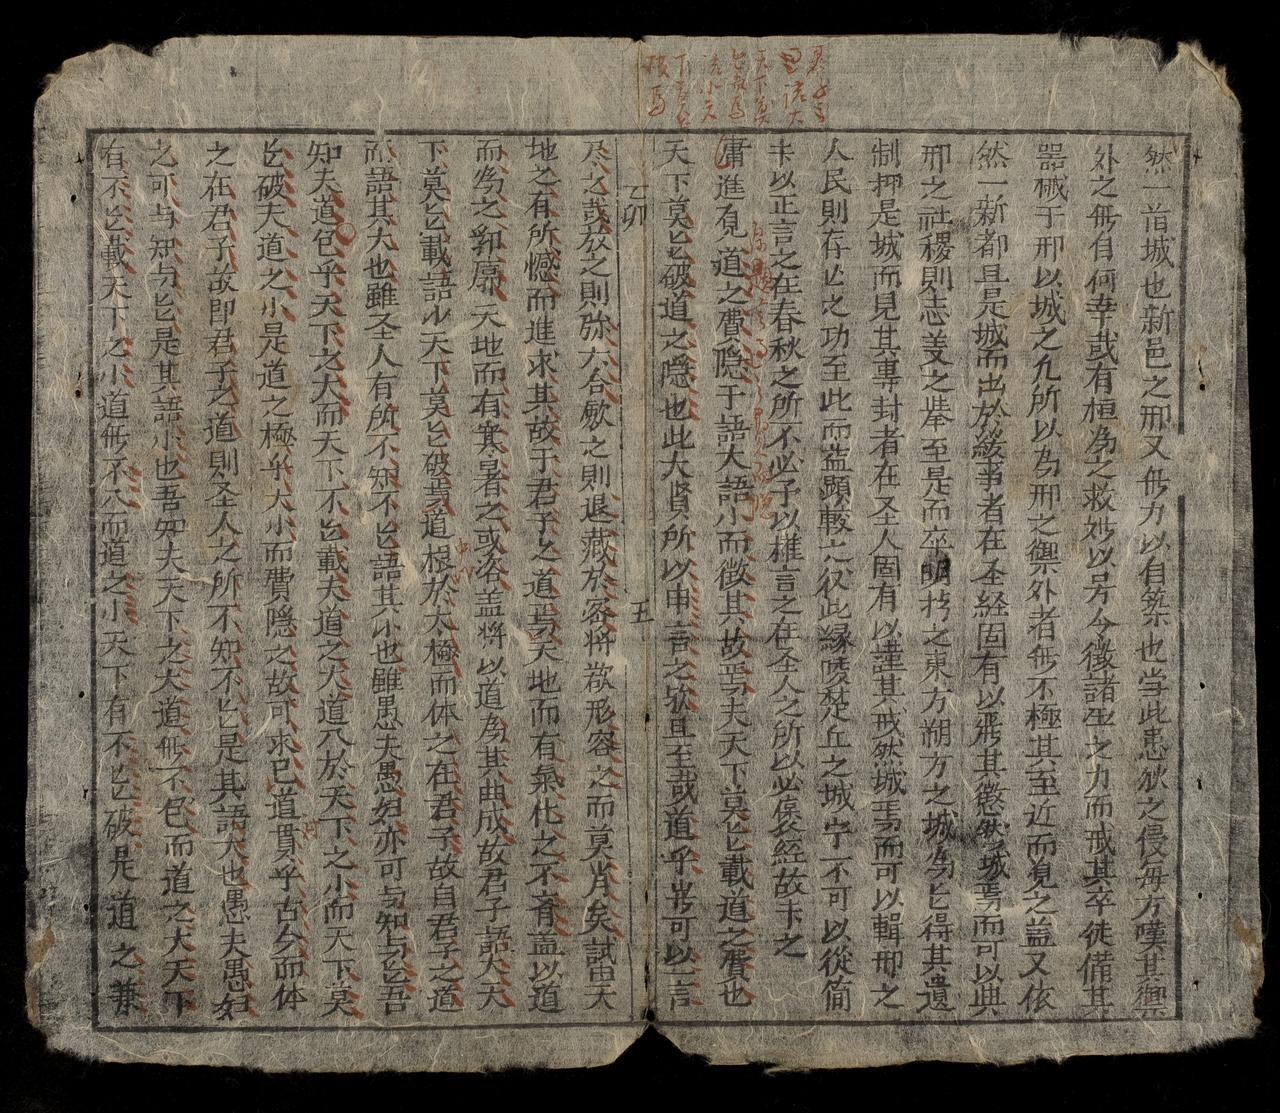 君子之
語大
天下莫
能載焉
語小天
下莫能
破焉
然一首城也新邑之邢又無力以自築也当此患狄之侵每方嘆其禦
外之無自何幸或有桓為之救妙以号令徵諸之力而戒其卒徒備其
器械于邢以城之凢所以為邢之禦外者無不極其至近而見之盖又依
然一新都且是城而出於緩事者在圣経固有以戒其懲然城焉而可以典
邢之社稷則志姜之舉至是而卒明於之東方朔方之城為㠯得其遺
制押是城而見其專封者在圣人固有以謹其戒然城焉而可以輯邢之
人民則存亡之功至此而益顕較之彼此縁陵楚丘之城宁不可以從简
卡以正言之在春秋之所不必予以権言之在圣人之所以必
庸進有見道之費隱于語大語小而徵其故焉夫天下莫㠯載道之費也
天下莫㠯破道之隠也此大贤所以申言之欤且至哉道乎岂可以一言
乙卯 五
尽之或放之則弥六合斂之則退藏於密将欲形容之而莫肖矣試由天
地之有所憾而進求其故于君子之道焉天地而有氣化之不育盖以道
而為之郛廓天地而有寒暑之或咨盖将以道為其曲成故君子語大天
下莫㠯載語小天下莫㠯破焉道根於太極而体之在君子故自君子之道
而語其大也雖圣人有所不知不㠯語其小也雖愚夫愚妇亦可与知与㠯吾
知夫道包乎天下之大而天下不㠯載夫道之大道入於天下之小而天下莫
㠯破夫道之小是道之極乎大小而費隠之故可求已道貫乎古今而体
之在君子故即君子之道則圣人之所不知不㠯是其語大也愚夫愚妇
之可与知与㠯是其語小也吾知夫天下之大道無不包而道之大天下
有不㠯載天下之小道無不入而道之小天下有不㠯破是道之兼